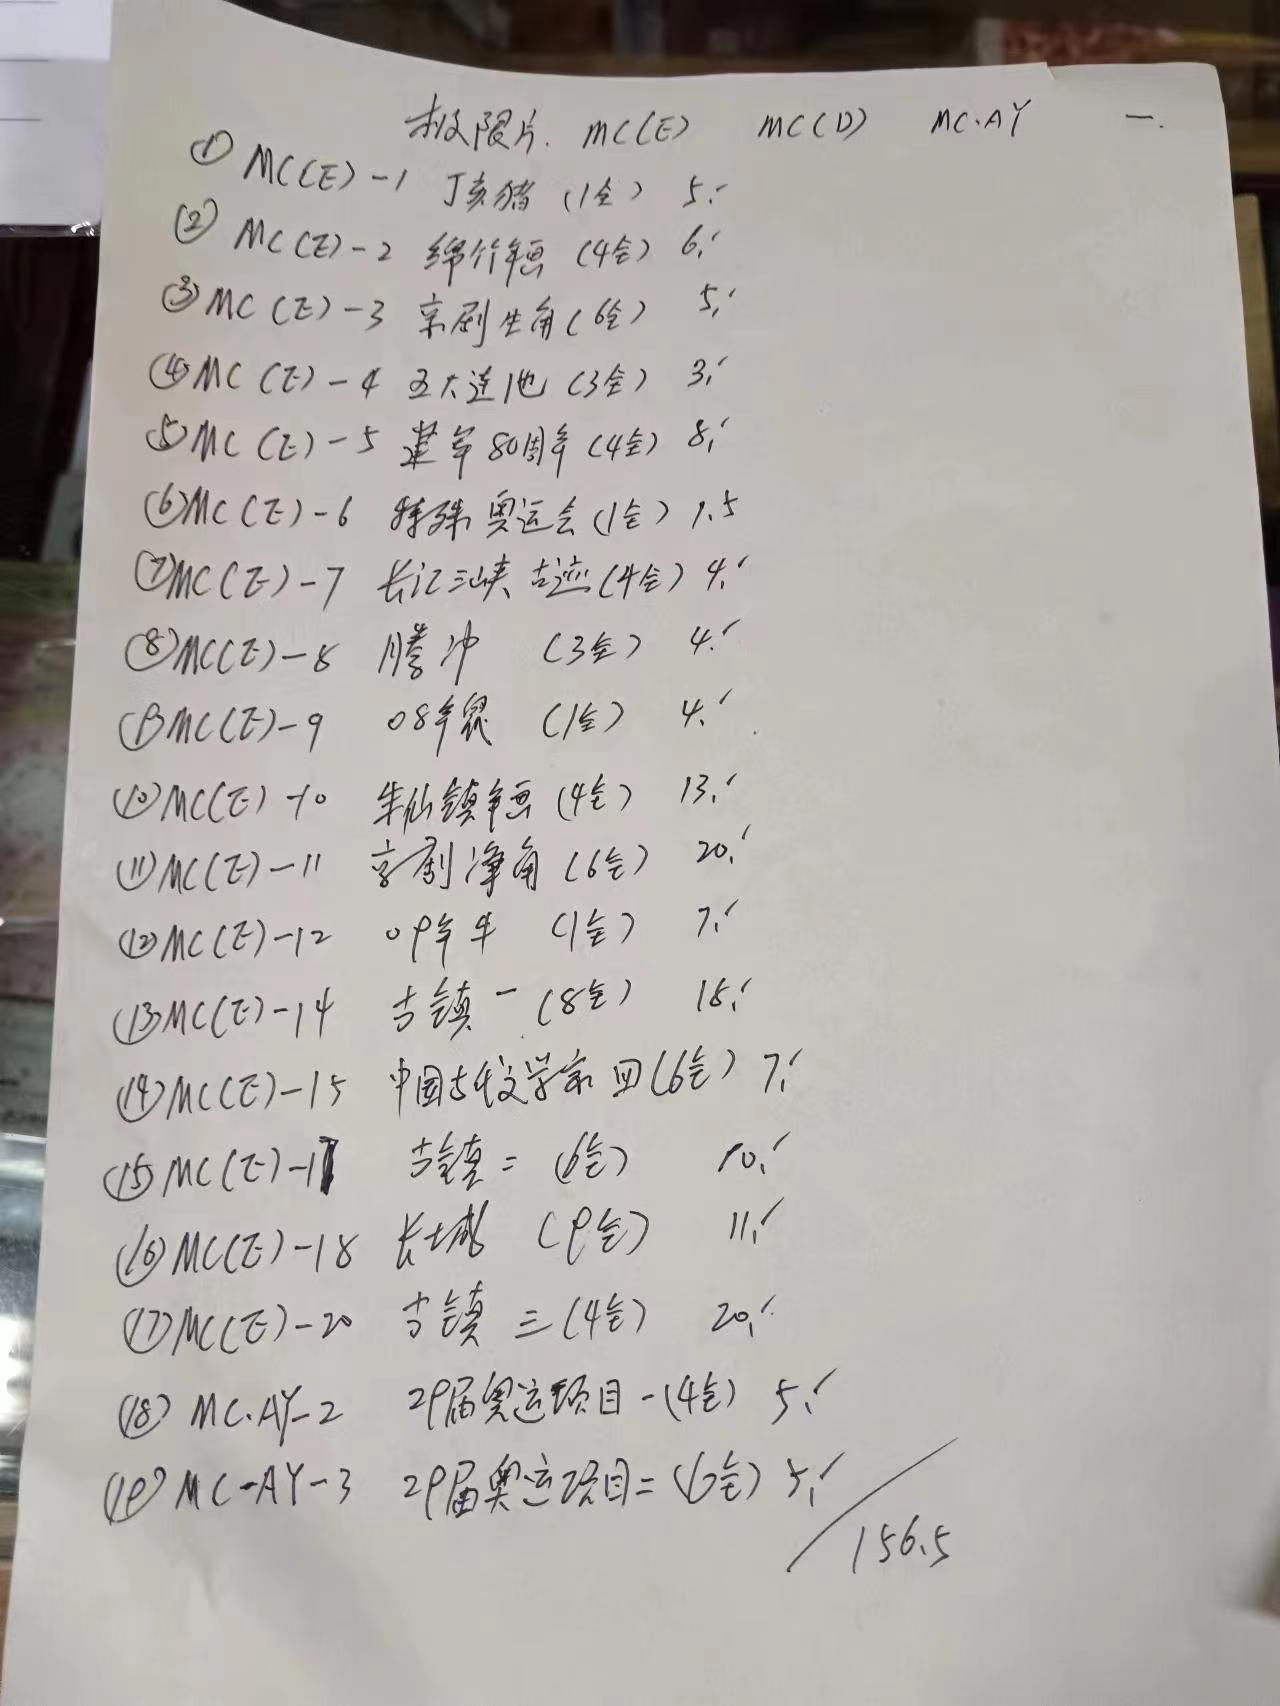 极限片. MC(E) MC(D) MC.AY 一.
① MC(E)-1 丁亥猪 (1全) 5.-
② MC(E)-2 绵竹年画 (4全) 6.-
③ MC(E)-3 京剧生角 (6全) 5.-
④ MC(E)-4 五大连池 (3全) 3.-
⑤ MC(E)-5 建军80周年 (4全) 8.-
⑥ MC(E)-6 特殊奥运会 (1全) 1.5
⑦ MC(E)-7 长江三峡古迹 (4全) 4.-
⑧ MC(E)-8 腾冲 (3全) 4.-
⑨ MC(E)-9 08年鼠 (1全) 4.-
⑩ MC(E)-10 朱仙镇年画 (4全) 13.-
⑪ MC(E)-11 京剧净角 (6全) 20.-
⑫ MC(E)-12 09年牛 (1全) 7.-
⑬ MC(E)-14 古镇一 (8全) 18.-
⑭ MC(E)-15 中国古代文学家四 (6全) 7.-
⑮ MC(E)-17 古镇二 (6全) 10.-
⑯ MC(E)-18 长城 (9全) 11.-
⑰ MC(E)-20 古镇三 (4全) 20.-
⑱ MC.AY-2 29届奥运项目一 (4全) 5.-
⑲ MC-AY-3 29届奥运项目二 (6全) 5.-
156.5